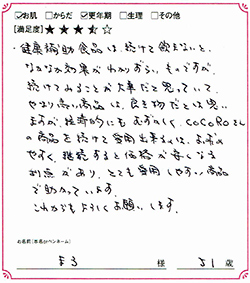 ☑お肌 □からだ ☑更年期 □生理 □その他
[満足度]★★★⯪☆
・健康補助食品は、続けて飲まないと、
なかなか効果がわかりずらい、ものですが、
続けてみることが大事だと思っていて、
やはり高い商品は、良き物だとは思い
ますが、経済的にもむずかしく、COCOROさん
の商品を続けて愛用出来るのは、お求め
やすく、継続すると価格が安くなる
利点があり、とても愛用しやすい商品
で助かっています。
これからもよろしくお願いします。
お名前(本名orペンネーム)
まう 様 51歳